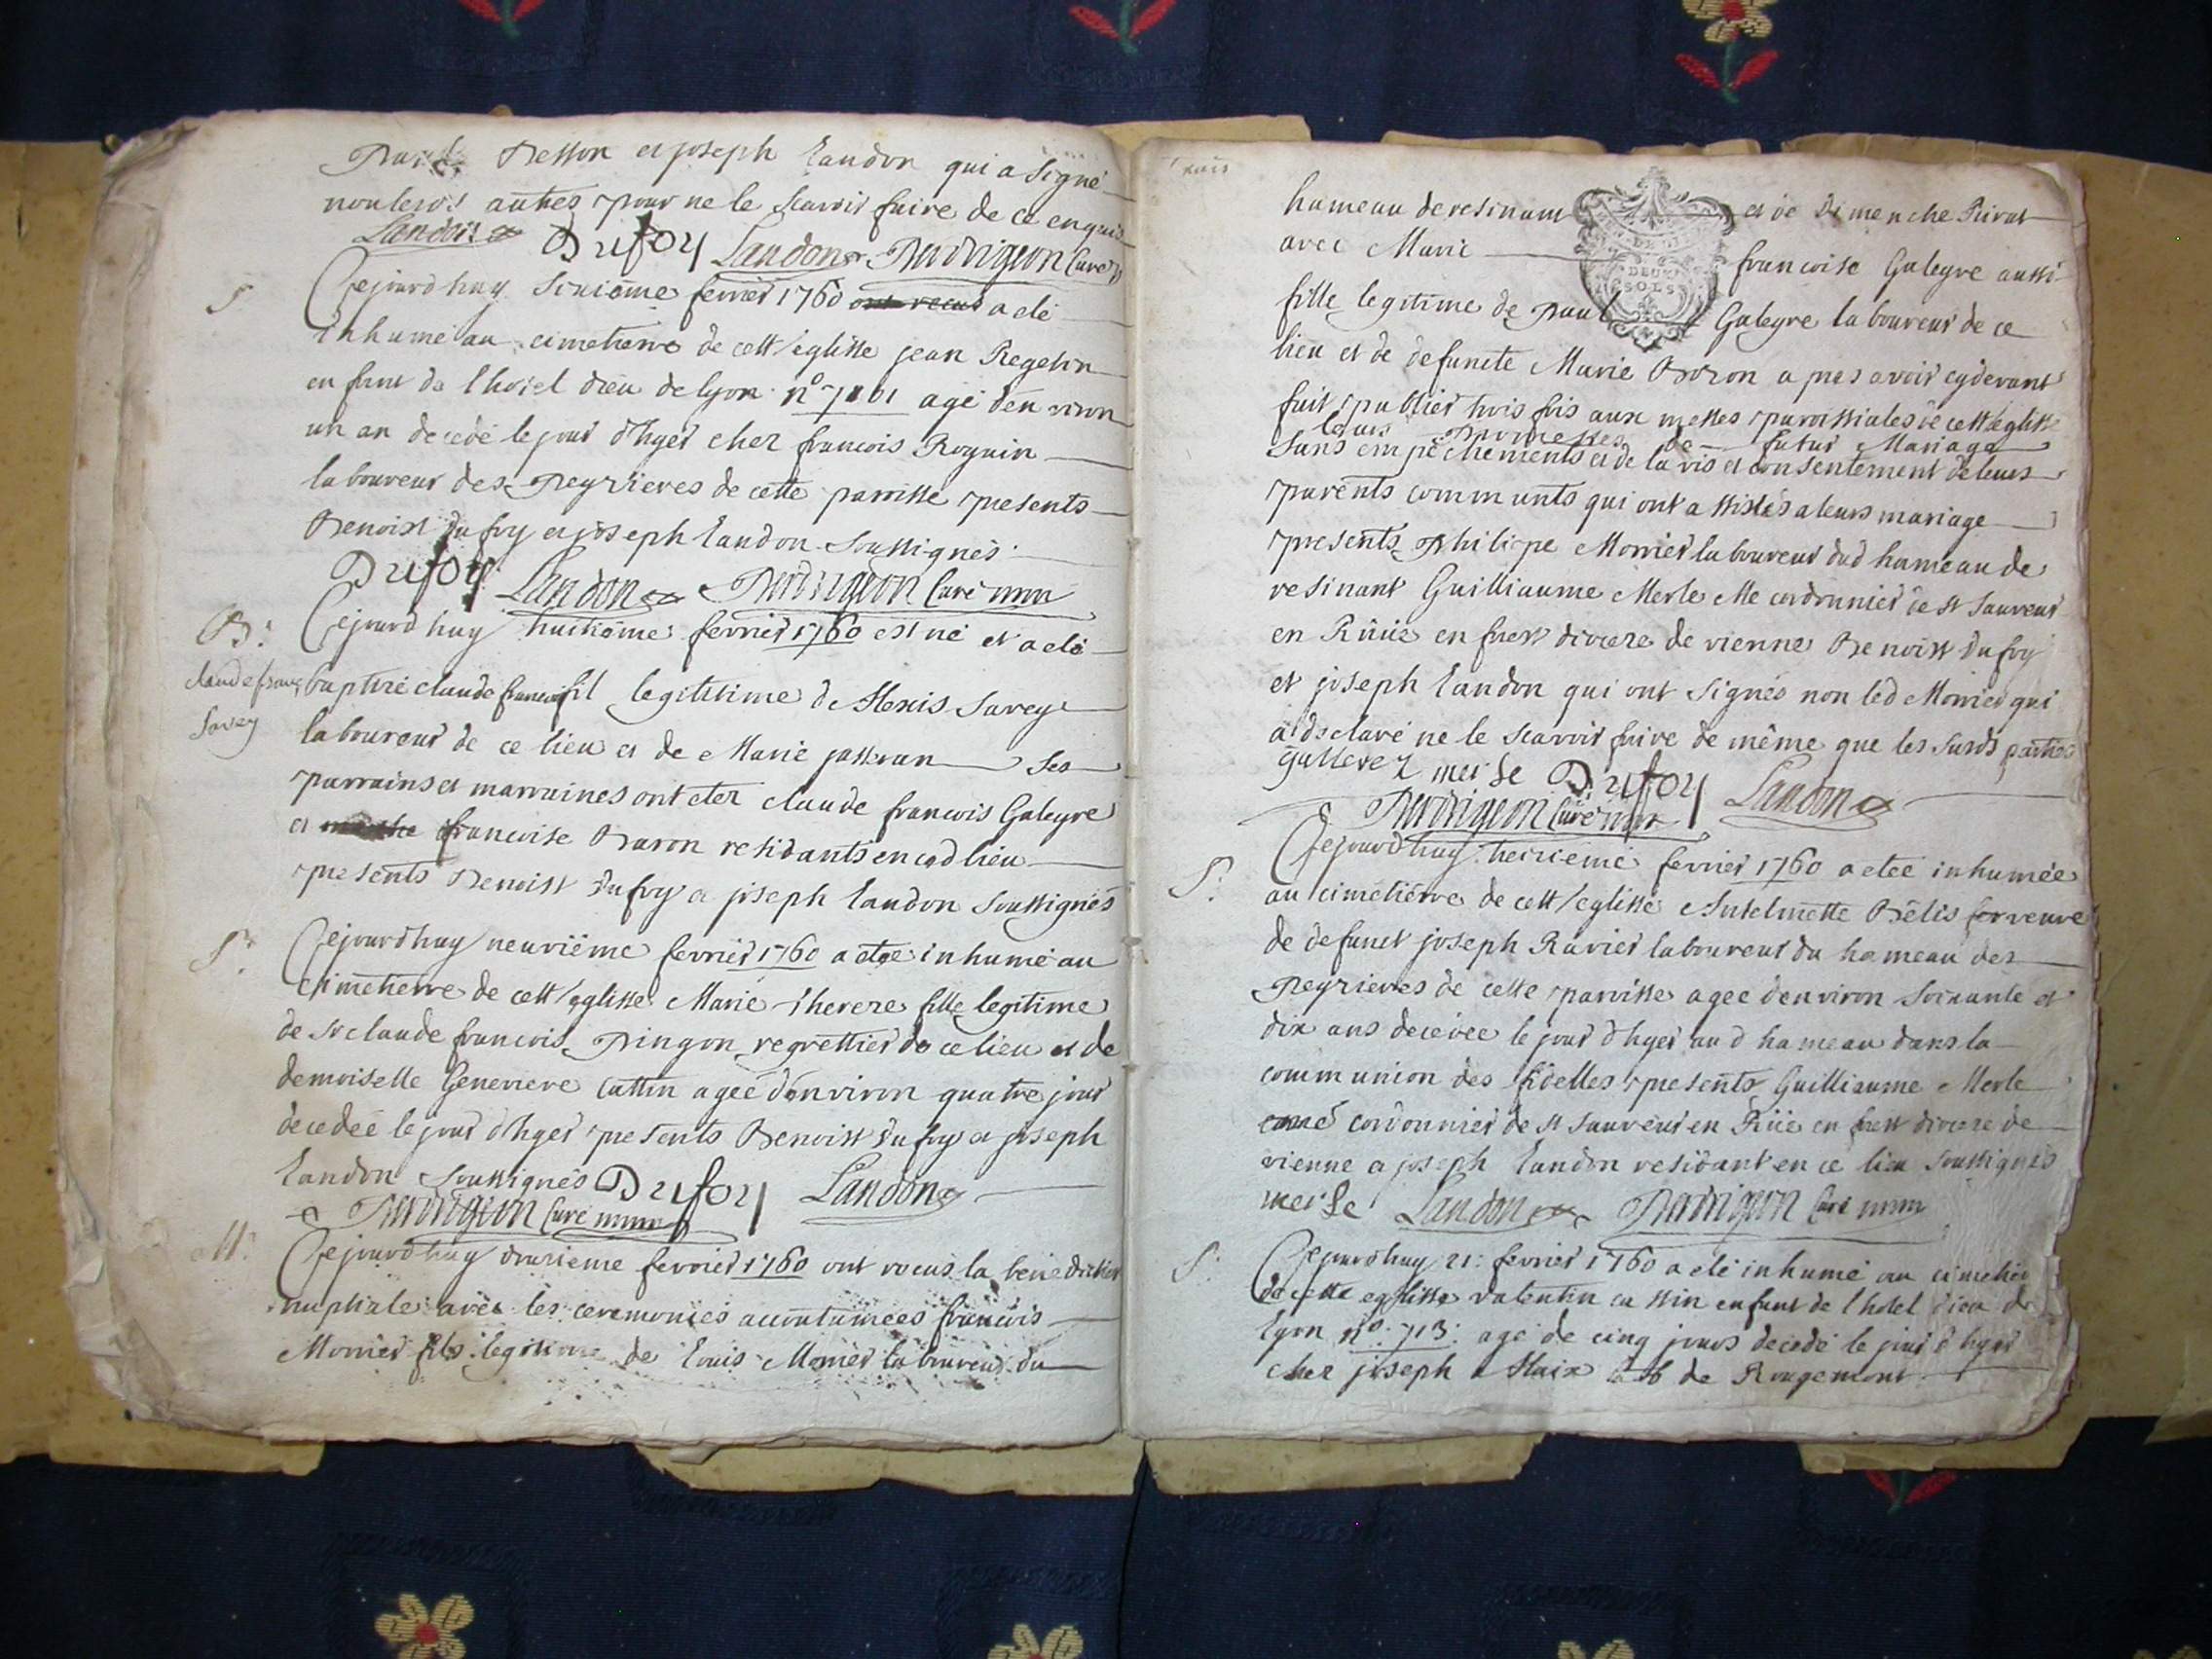 Besson et joseph Landon qui a signé
non les autres pour ne le scavoir faire de ce enquis
Landon Dufoy Landon Perdrigeon Curé
S.
Cejourd huy sixiême fevrier 1760 ont recus a eté
inhumé au cimetierre de cett eglisse jean Regelin
enfant de l hotel dieu de lyon n° agé d'environ
un an decedé le jour d'hyer cher francois Roynin
laboureur des peyrieres de cette parroisse presents
Benoist Dufoy et joseph Landon soussignés
Dufoy Landon Perdrigeon Curé
B:
claude franc
Savey
Cejourd huy huitiême fevrier 1760 est né et a eté
baptizé claude francois fil legittime de Alexis Savey
laboureur de ce lieu et de Marie passeran ses
parrains et marraines ont eter claude francois Galeyre
et francoise Baron residants en cod lieu
presents Benoist Dufoy et joseph Landon soussignés
S:
Cejourd huy neuviême fevrier 1760 a etée inhumé au
cimetierre de cett eglisse Marie therere fille legitime
de Sr claude francois Pingon regrettier de ce lieu et de
demoiselle Genevieve Cattin agée d'environ quatre jour
decedée le jour d'hyer presents Benoist Dufoy et joseph
Landon soussignés Dufoy Landon
Perdrigeon Curé
M:
Cejourd huy onzieme fevrier 1760 ont recus la benediction
nuptiale avec les ceremonies accoutumées francois
Monier fils legitime de Louis Monier laboureur du
hameau de resinant et de Dimenche Pivat
avec Marie francoise Galeyre aussi
DEUX
SOLS
fille legitime de paul Galeyre laboureur de ce
lieu et de defuncte Marie Boron apres avoir cydevant
fait publier trois fois aux messes paroissiales de cett eglisse
leurs promesses de futur Mariage
sans empêchements et de lavis et consentement de leurs
parents communts qui ont assistés a leurs mariage
presents Philippe Monier laboureur dud hameau de
resinant Guilliaume Merle Me cordonnier de st Sauveur
en Rüie en diocere de vienne Benoist Dufoy
et joseph Landon qui ont signés non led Monier qui
a declaré ne le scavoir faire de même que les susds parties
Dufoy Landon
Perdrigeon Curé
S:
Cejourd huy treizieme fevrier 1760 a etée inhumée
au cimetiérre de cett eglisse Antelmette Bêlis veuve
de defunct joseph Ravier laboureur du hameau des
Peyrieres de cette parroisse agee d'environ soixante et
dix ans decedée le jour d'hyer aud hameau dans la
communion des fidelles presents Guilliaume Merle
cordonnier de st sauveur en Rüie en diocere de
vienne et joseph Landon residant en ce lieu soussignés
Landon Perdrigeon Curé
S:
Cejourd huy 21: fevrier 1760 a eté inhumé au cimetier
de cette eglisse valentin cassin enfant de l hotel dieu de
lyon n°: 713: agé de cinq jours decedé le jour d hyer
cher joseph Alaix lab de Rougemont